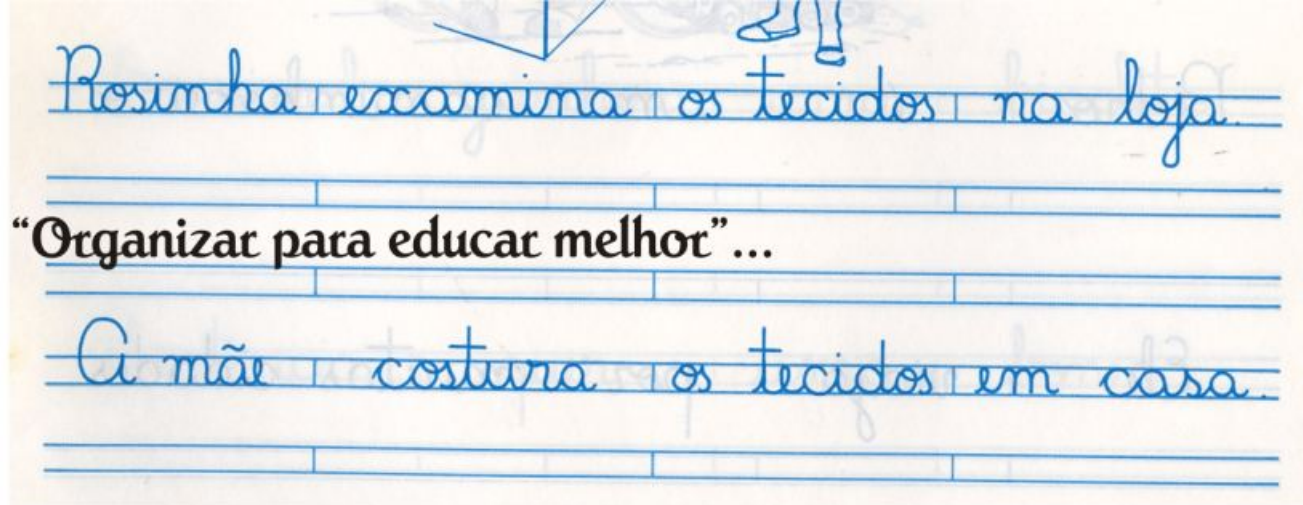 Rosinha examina os tecidos na loja.
“Organizar para educar melhor”...
A mãe costura os tecidos em casa.